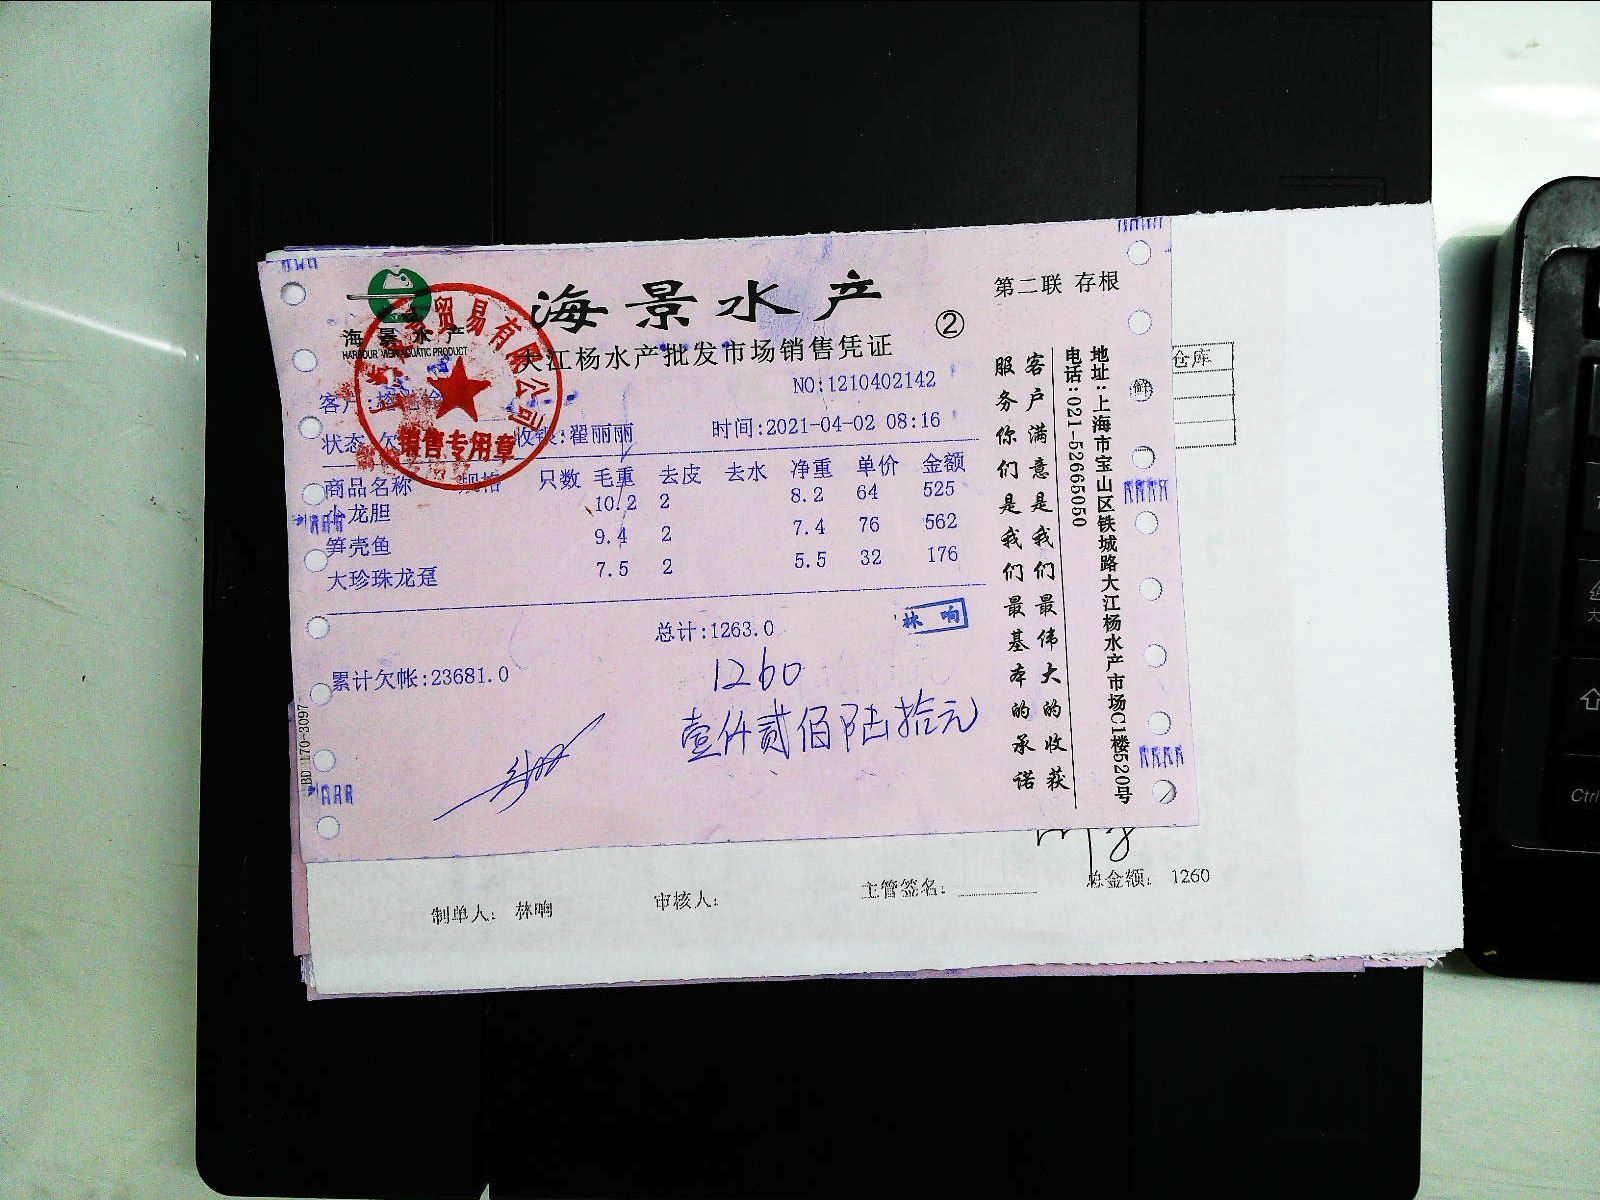 海景水产
HARBOUR VIEW AQUATIC PRODUCT
海景水产
②
第二联 存根
大江杨水产批发市场销售凭证
NO:1210402142
客户:
状态:欠 收银:翟丽丽 时间:2021-04-02 08:16
贸易有限公司
销售专用章
商品名称 规格 只数 毛重 去皮 去水 净重 单价 金额
小龙胆 10.2 2 8.2 64 525
笋壳鱼 9.4 2 7.4 76 562
大珍珠龙趸 7.5 2 5.5 32 176
总计:1263.0
林响
累计欠帐:23681.0
1260
壹仟贰佰陆拾元
BD 170-3097
地址:上海市宝山区铁城路大江杨水产市场C1楼520号
电话:021-52665050
客户满意是我们最伟大的收获
服务你们是我们最基本的承诺
仓库
鲜
制单人: 林响 审核人: 主管签名: 总金额: 1260